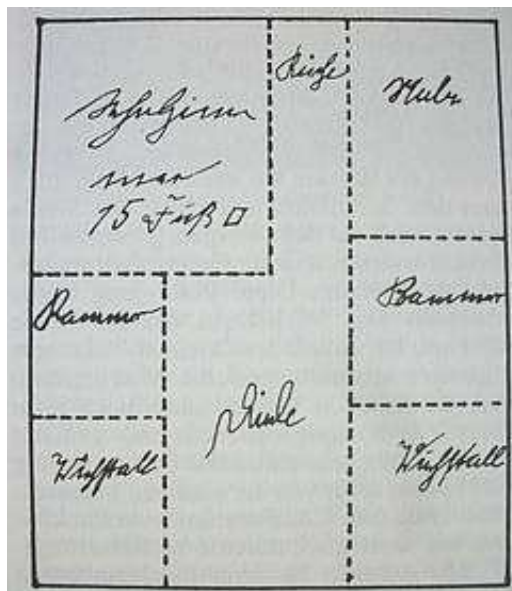 Schulzimmer
15 Fuß □
Küche
Stube
Kammer
Kammer
Diele
Viehstall
Viehstall